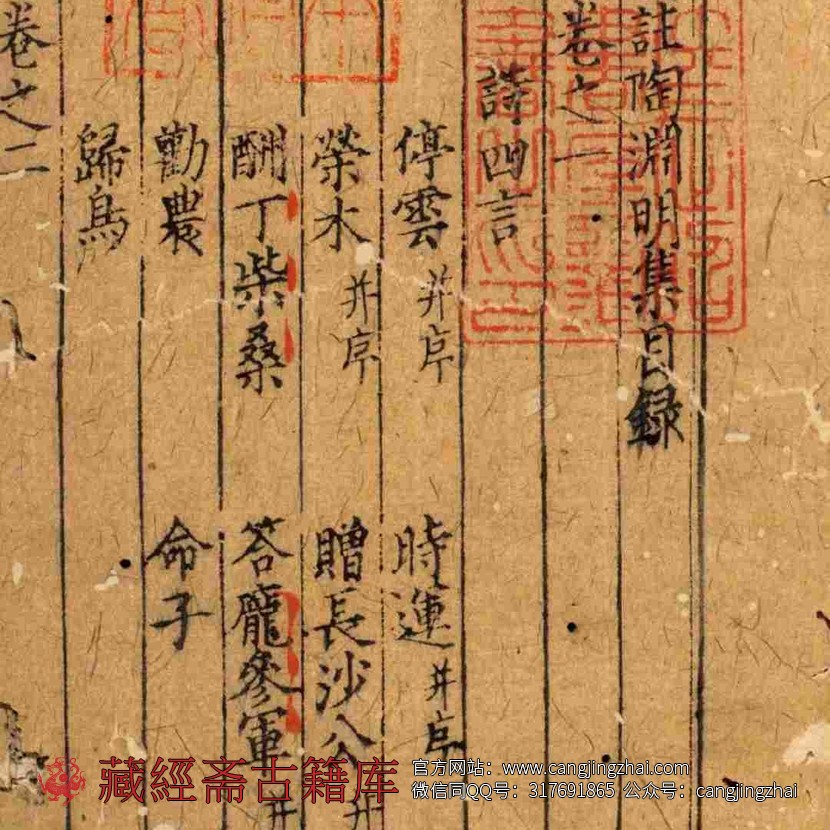 註陶淵明集目録
卷之一
詩四言
停雲 并序 時運 并序
榮木 并序 贈長沙公 并
酬丁柴桑 答龐參軍 并
勸農 命子
歸鳥
卷之二
藏經斋古籍库
官方网站：www.cangjingzhai.com
微信同QQ号：317691865 公众号：cangjingzhai